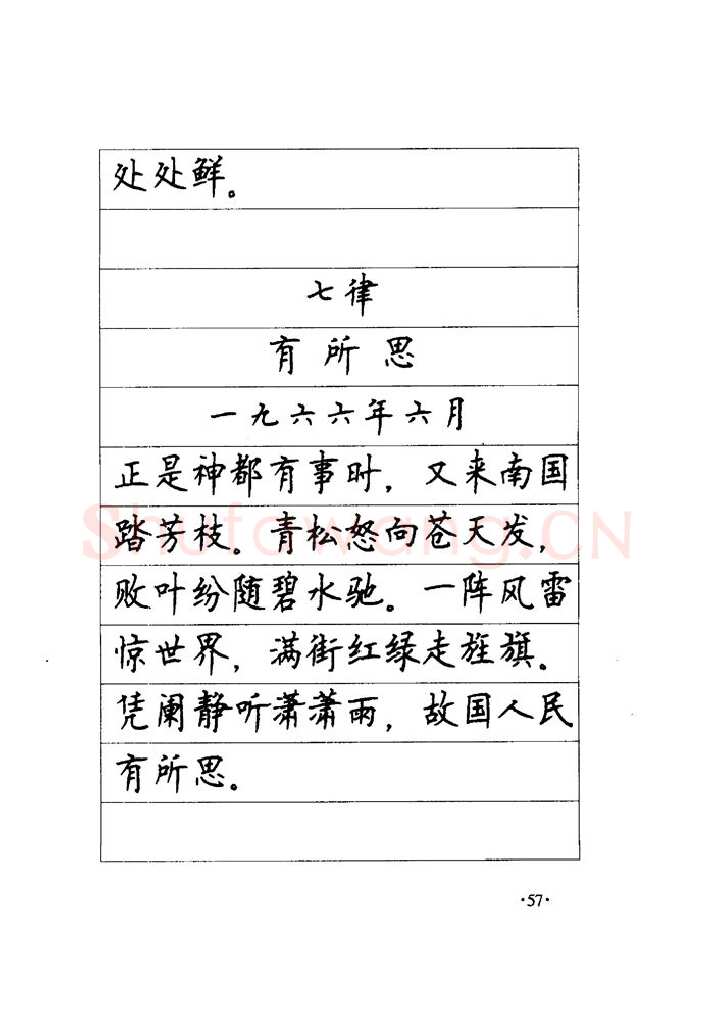 处处鲜。
七律
有所思
一九六六年六月
正是神都有事时，又来南国
踏芳枝。青松怒向苍天发，
败叶纷随碧水驰。一阵风雷
惊世界，满街红绿走旌旗。
凭阑静听潇潇雨，故国人民
有所思。
Shufawang.CN
·57·